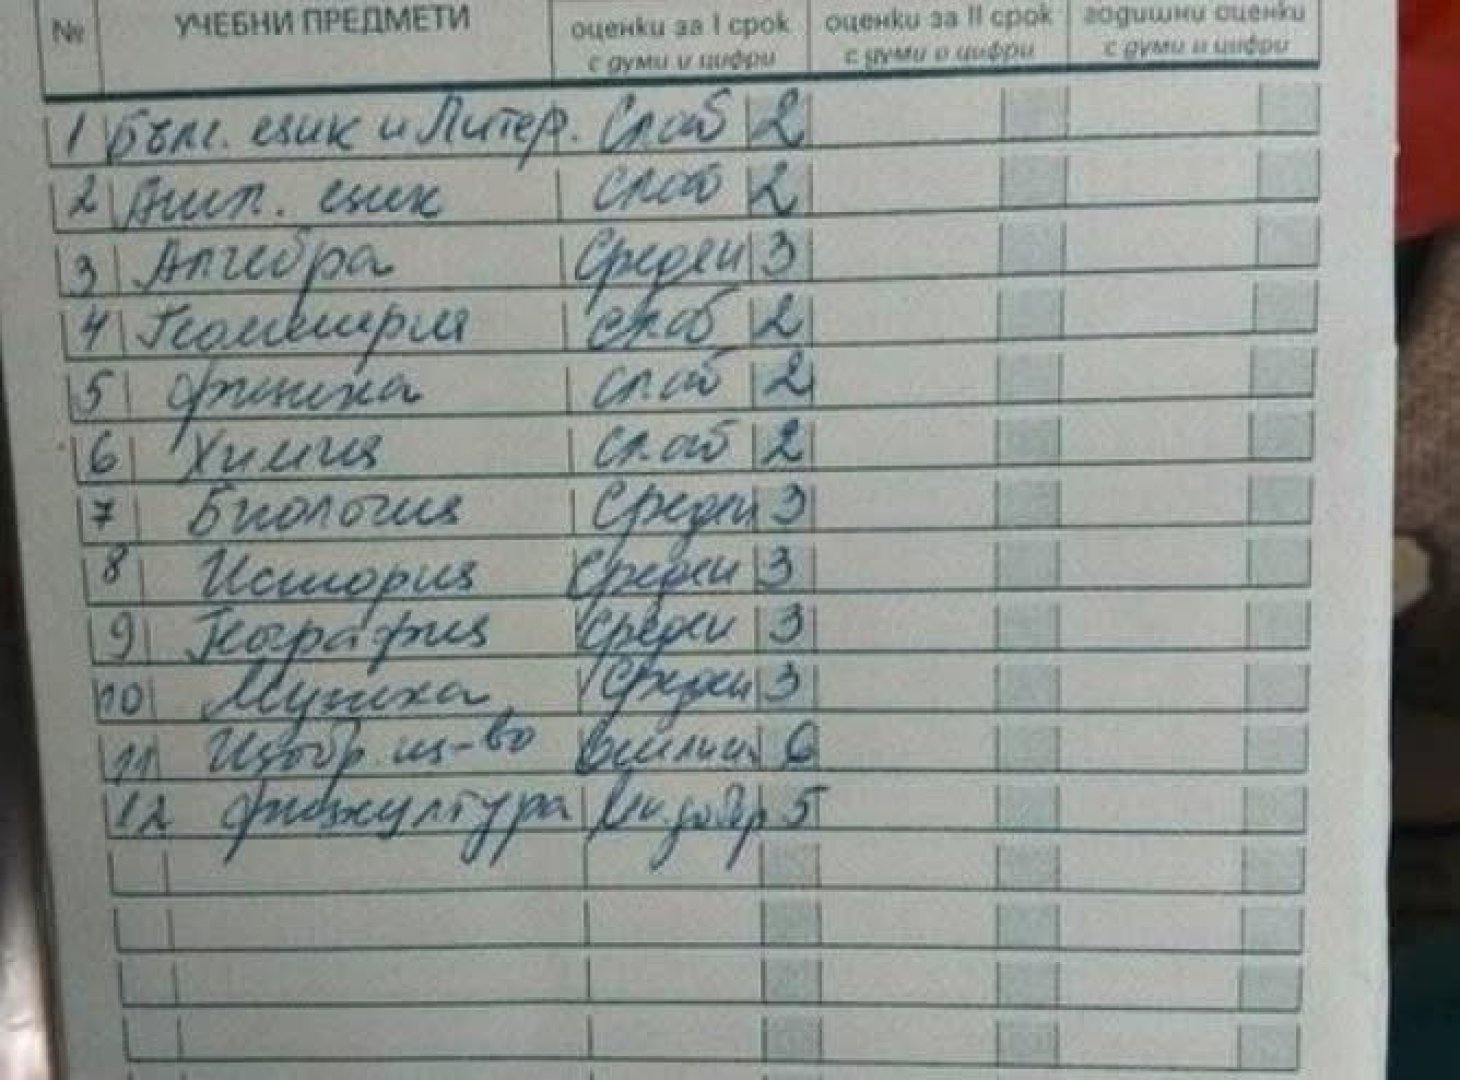 № УЧЕБНИ ПРЕДМЕТИ оценки за I срок с думи и цифри оценки за II срок с думи и цифри годишни оценки с думи и цифри
1 Бълг. език и Литер. Слаб 2
2 Англ. език Слаб 2
3 Алгебра Среден 3
4 Геометрия слаб 2
5 физика слаб 2
6 Химия слаб 2
7 Биология Среден 3
8 История Среден 3
9 География Среден 3
10 Музика Среден 3
11 Изобр. из-во 6
12 физкултура Мн. добр 5